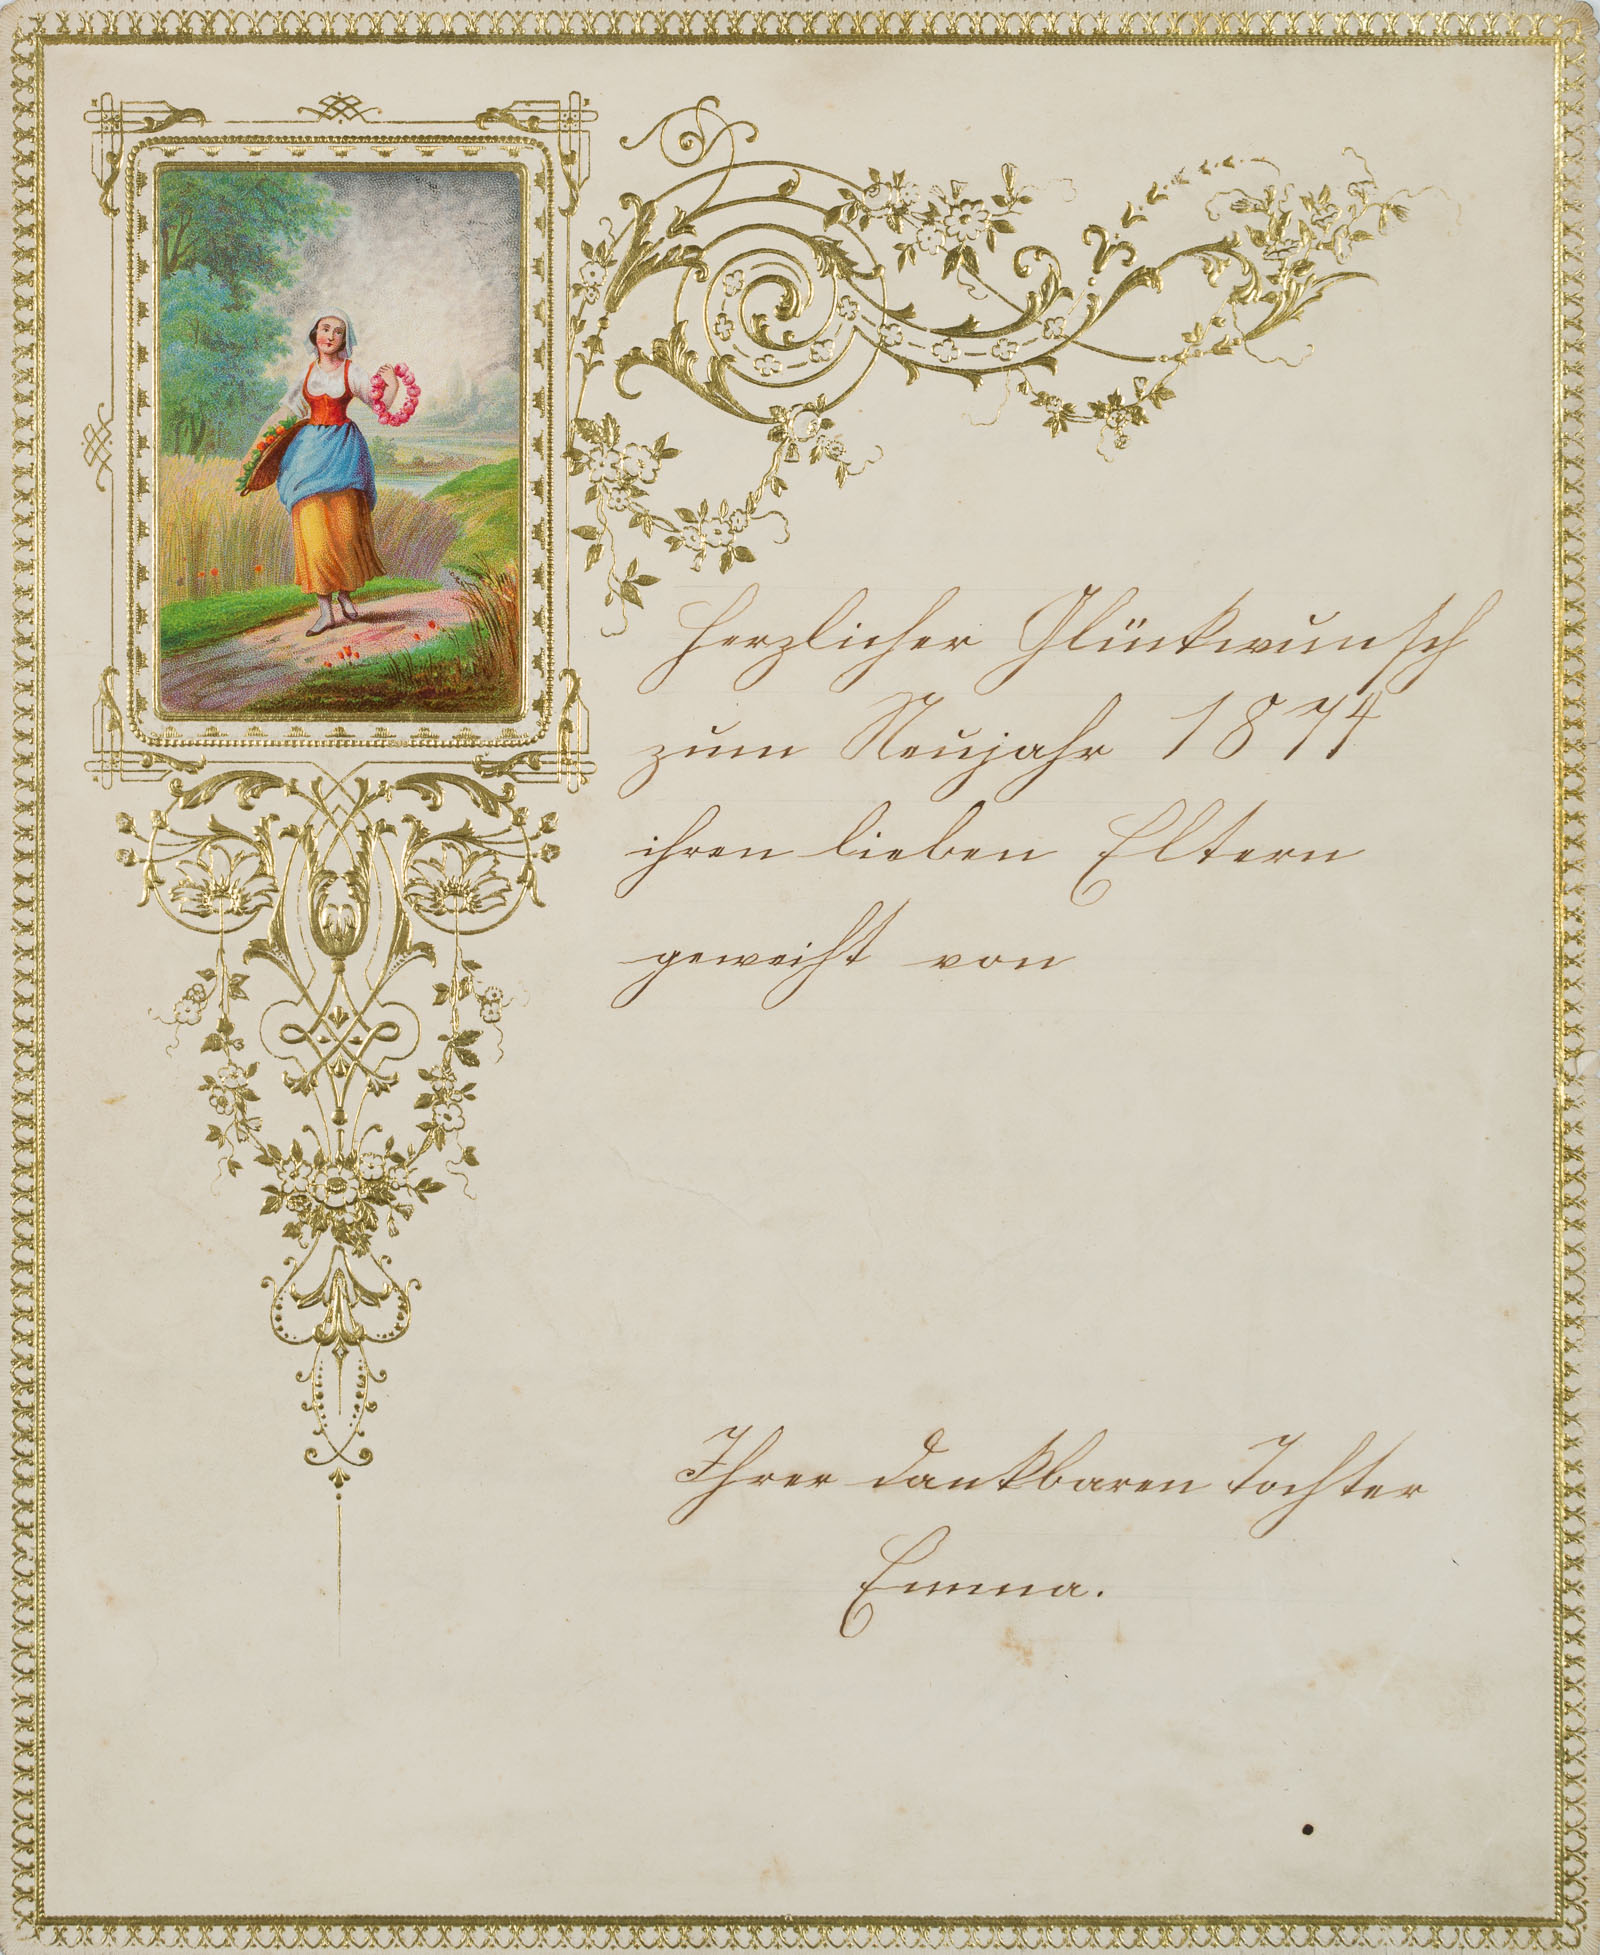 Herzlicher Glückwunsch
zum Neujahr 1874
ihren lieben Eltern
geweiht von
Ihrer dankbaren Tochter
Emma.